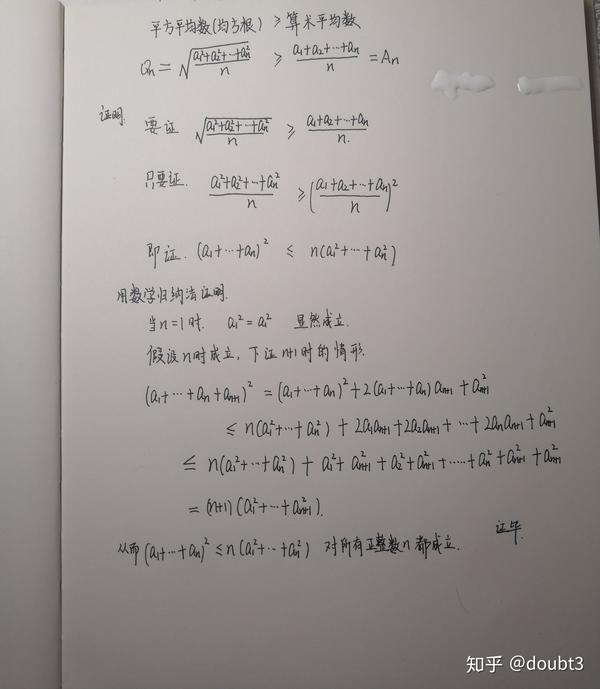 平方平均数(均方根) ≥ 算术平均数
Qn = √((a₁²+a₂²+…+aₙ²)/n) ≥ (a₁+a₂+…+aₙ)/n = An
证明: 要证 √((a₁²+a₂²+…+aₙ²)/n) ≥ (a₁+a₂+…+aₙ)/n.
只要证. (a₁²+a₂²+…+aₙ²)/n ≥ ((a₁+a₂+…+aₙ)/n)²
即证. (a₁+…+aₙ)² ≤ n(a₁²+…+aₙ²)
用数学归纳法证明.
当n=1时. a₁²=a₁² 显然成立.
假设n时成立, 下证n+1时的情形.
(a₁+…+aₙ+aₙ₊₁)² = (a₁+…+aₙ)²+2(a₁+…+aₙ)aₙ₊₁+aₙ₊₁²
≤ n(a₁²+…+aₙ²)+2a₁aₙ₊₁+2a₂aₙ₊₁+…+2aₙaₙ₊₁+aₙ₊₁²
≤ n(a₁²+…+aₙ²)+a₁²+aₙ₊₁²+a₂²+aₙ₊₁²+……+aₙ²+aₙ₊₁²+aₙ₊₁²
= (n+1)(a₁²+…+aₙ₊₁²).
从而(a₁+…+aₙ)² ≤ n(a₁²+…+aₙ²) 对所有正整数n都成立.
证毕.
知乎 @doubt3